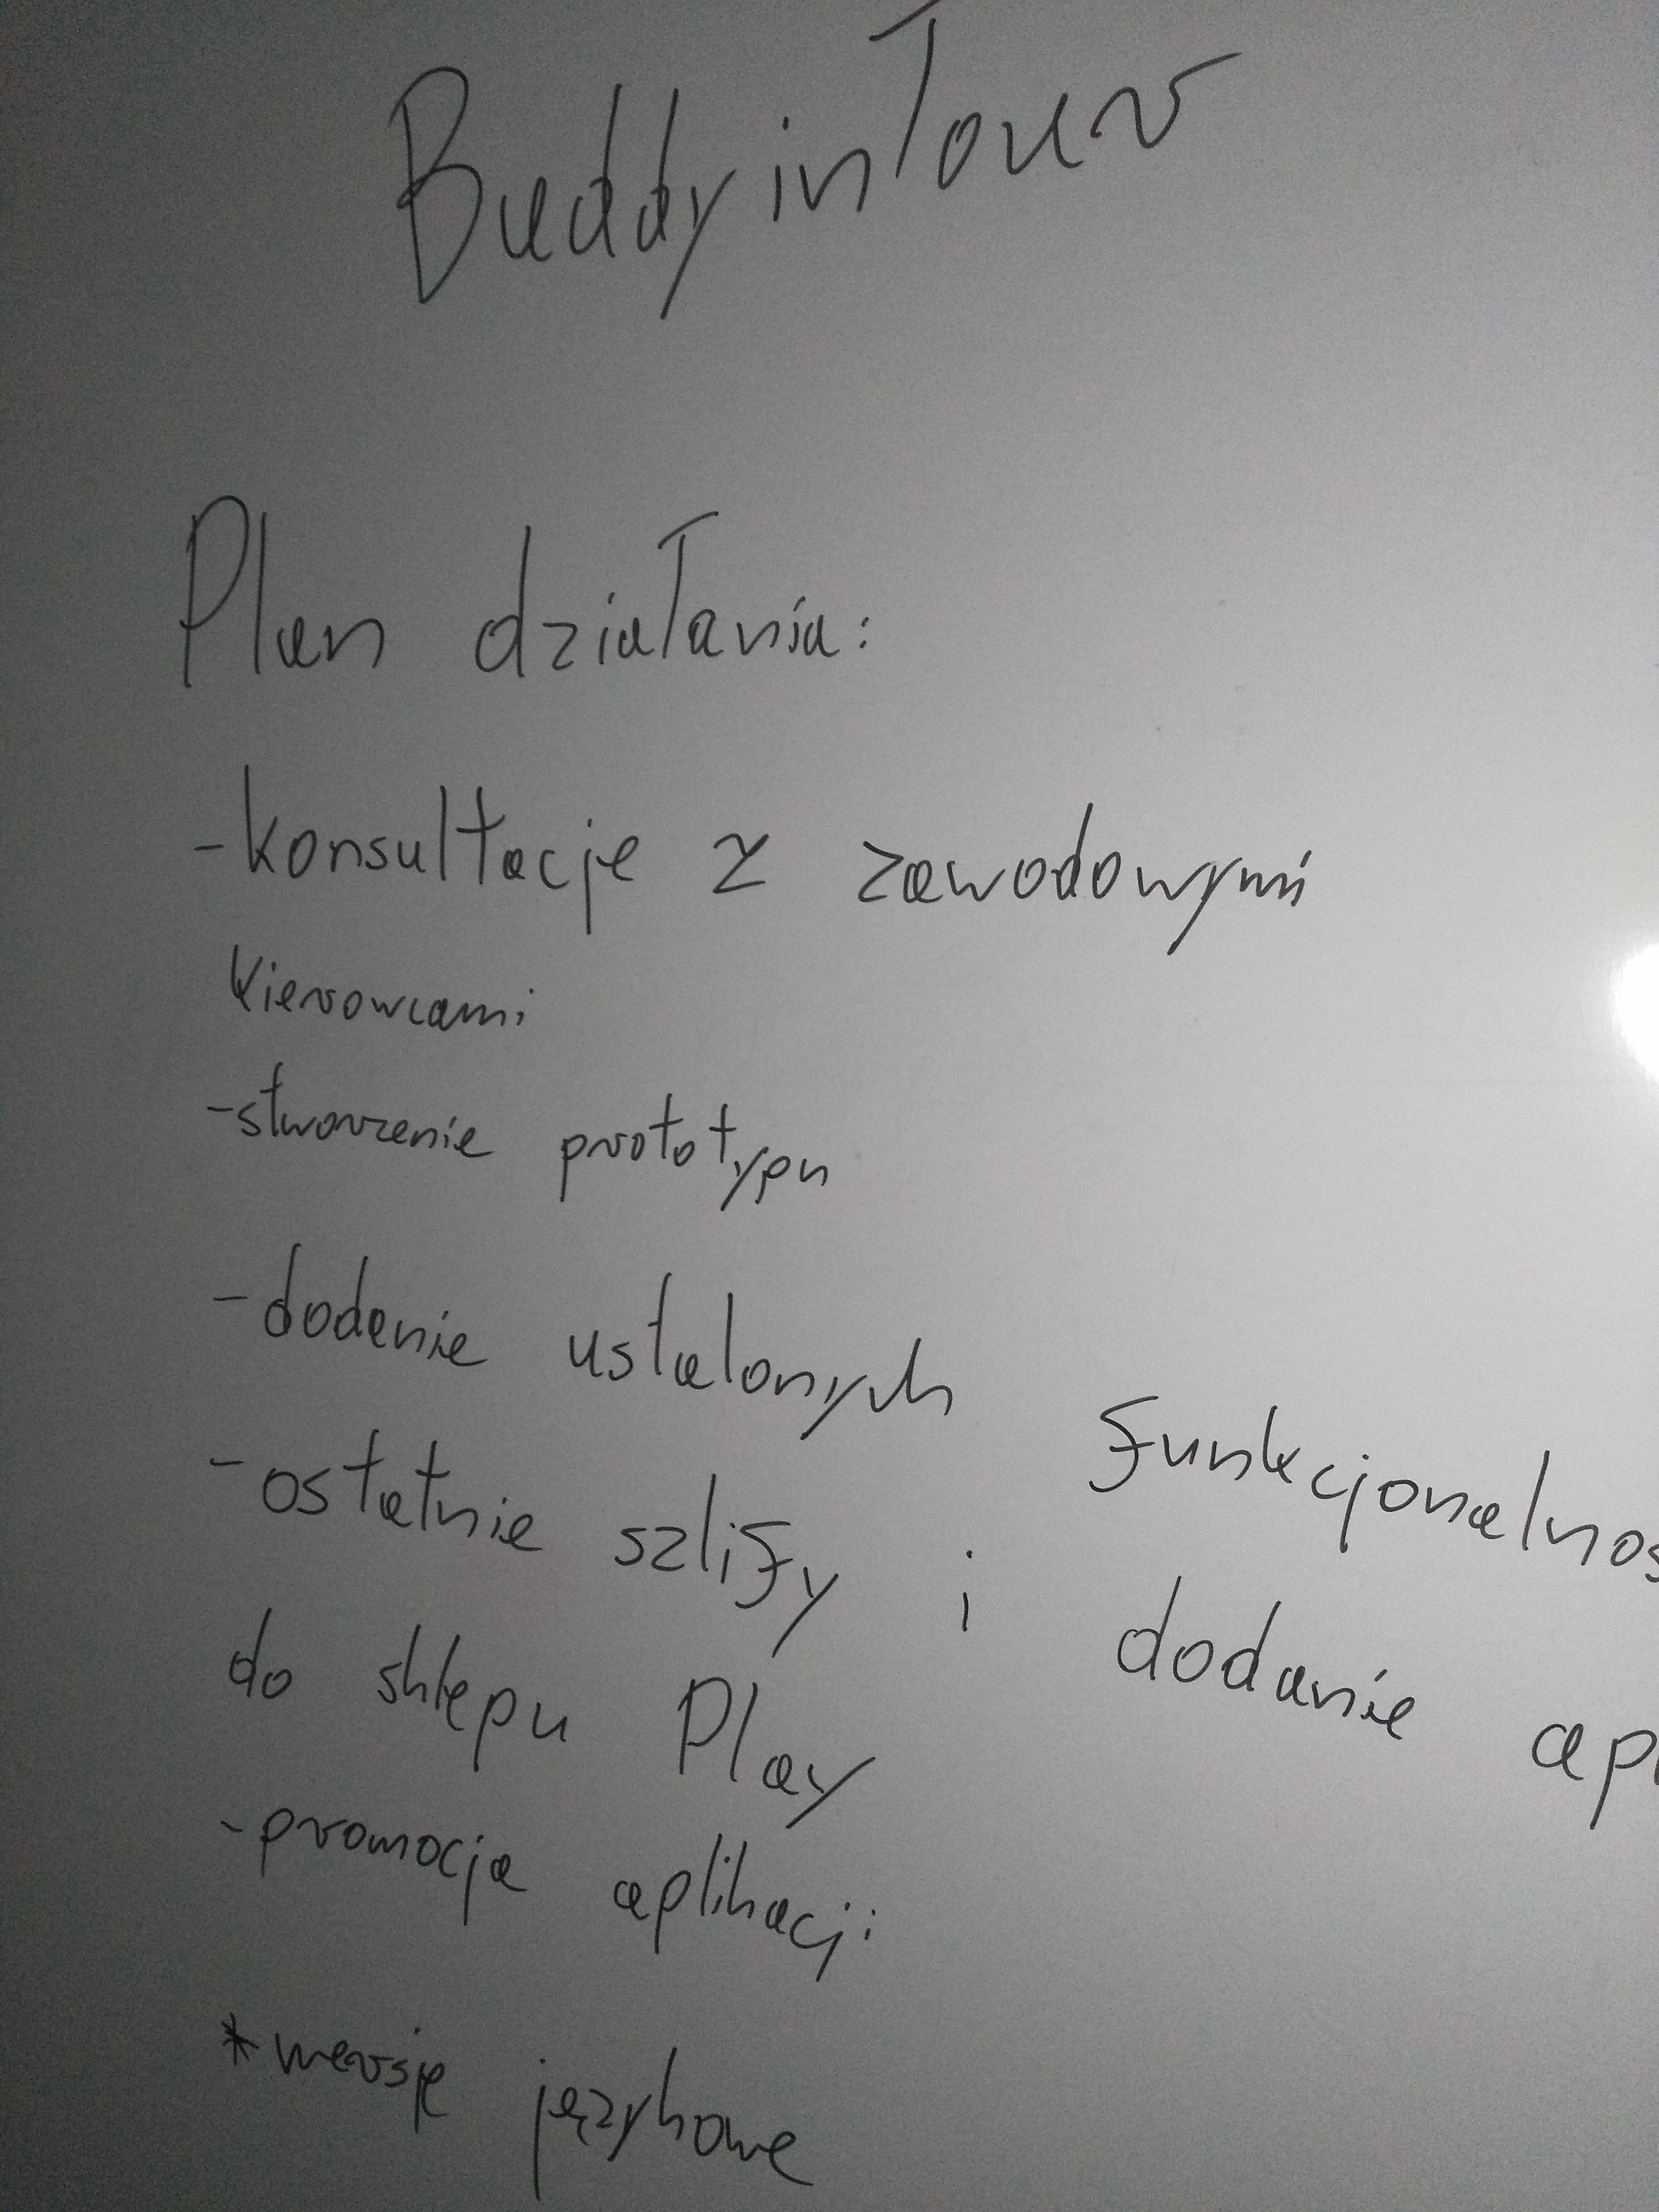 Buddy in Tour
Plan działania:
-konsultacje z zawodowymi
kierowcami
-stworzenie prototypu
-dodanie ustalonych funkcjonalnoś
-ostatnie szlify i dodanie apl
do sklepu Play
-promocja aplikacji
*wersje językowe